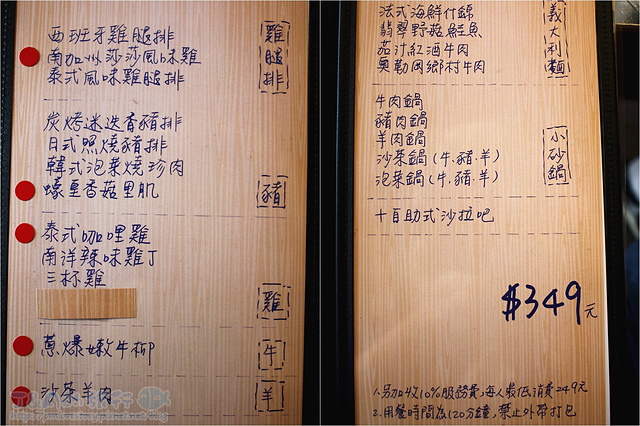 西班牙雞腿排
南加州莎莎風味雞
泰式風味雞腿排
雞腿排
炭烤迷迭香豬排
日式照燒豬排
韓式泡菜燒珍肉
蠔皇香菇里肌
豬
泰式咖哩雞
南洋辣味雞丁
三杯雞
雞
蔥爆嫩牛柳
牛
沙茶羊肉
羊
法式海鮮什錦
翡翠野菇鮭魚
茄汁紅酒牛肉
奧勒岡鄉村牛肉
義大利麵
牛肉鍋
豬肉鍋
羊肉鍋
沙茶鍋(牛.豬.羊)
泡菜鍋(牛.豬.羊)
小砂鍋
+自助式沙拉吧
$349元
1.另加收10%服務費,每人最低消費249元
2.用餐時間為120分鐘,禁止外帶打包